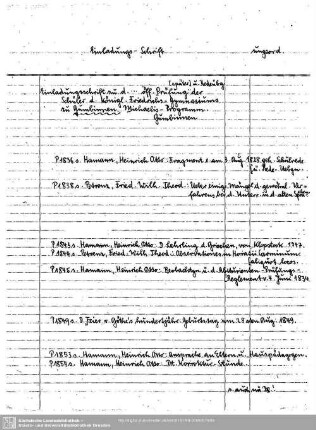 Einladungs-Schrift ungeord.
(später) u. Redeübg
Einladungsschrift zu d. ... öff. Prüfung der
Schüler d. Königl. Friedrichs-Gymnasiums
zu Gumbinnen Michaelis-Programm
Gumbinnen
P1836 s. Hamann, Heinrich Otto: Fragment e. am 3. Aug. 1828 geh. Schulrede
P1838 s. Petrenz, Fried. Wilh. Theod.: Ueber einige Mängel d. gewöhnl. Ver-
fahrens bei d. Unterr. in d. alten
P1843 s. Hamann, Heinrich Otto: D. Lehrling d. Griechen, von Klopstock. 1747.
P1844 s. Petrenz, Fried. Wilh. Theod.: Observationes in Horatii carminum
P1845 s. Hamann, Heinrich Otto: Beobachtgn ü. d. Abiturienten-Prüfungs-
Reglement v. 4. Juni 1834
P1849 s. D. Feier v. Göthe's hundertjähr. Geburtstag am 28sten Aug. 1849.
P1853 s. Hamann, Heinrich Otto: Ansprache an Eltern u. Hauspädagogen.
P1854 s. Hamann, Heinrich Otto: Dt. Korrektur-Stunde.
s. auch